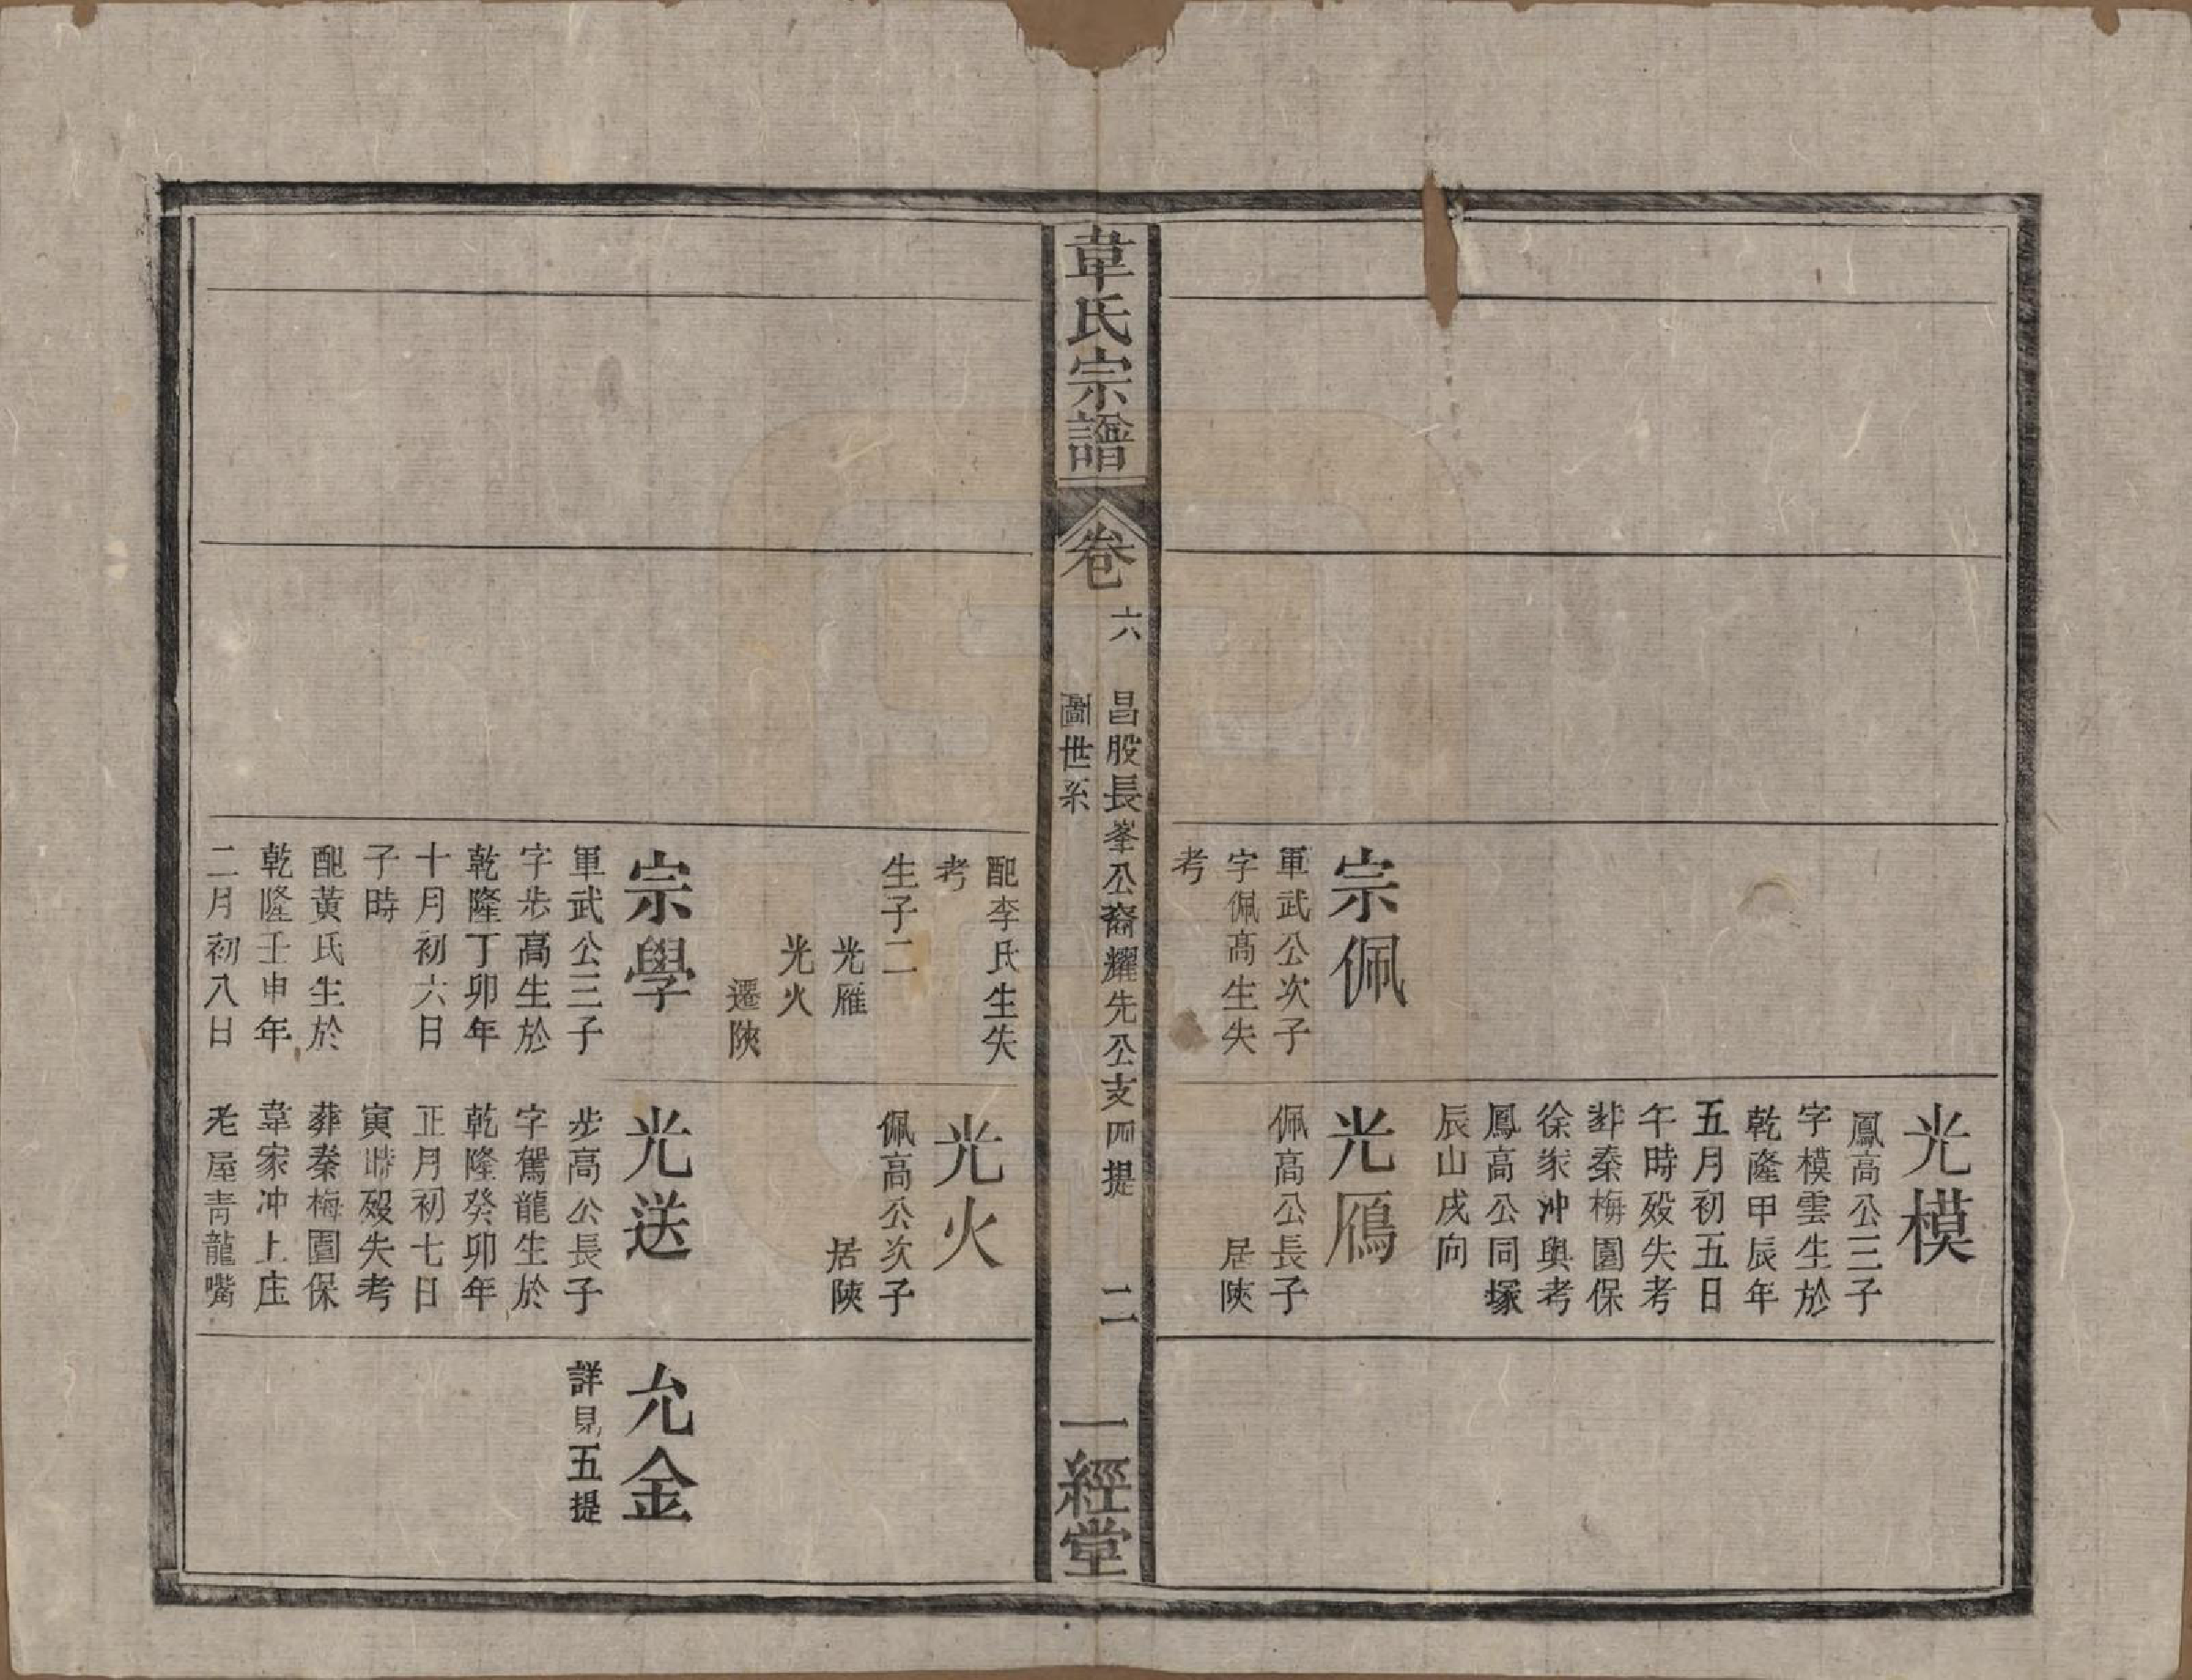 宗佩
軍武公次子
字佩高生失
考
光模
鳳高公三子
字模雲生於
乾隆甲辰年
五月初五日
午時歿失考
葬秦梅園保
徐家冲與考
鳳高公同塚
辰山戌向
光鴈
佩高公長子
居陝
韋氏宗譜
卷六
昌股長峯公裔耀先公支四提
圖世系
二
一經堂
配李氏生失
考
生子二
光雁
光火
遷陝
宗學
軍武公三子
字步高生於
乾隆丁卯年
十月初六日
子時
配黃氏生於
乾隆壬申年
二月初八日
光火
佩高公次子
居陝
光送
步高公長子
字駕龍生於
乾隆癸卯年
正月初七日
寅時歿失考
葬秦梅園保
韋家冲上庄
老屋青龍嘴
允金
詳見五提